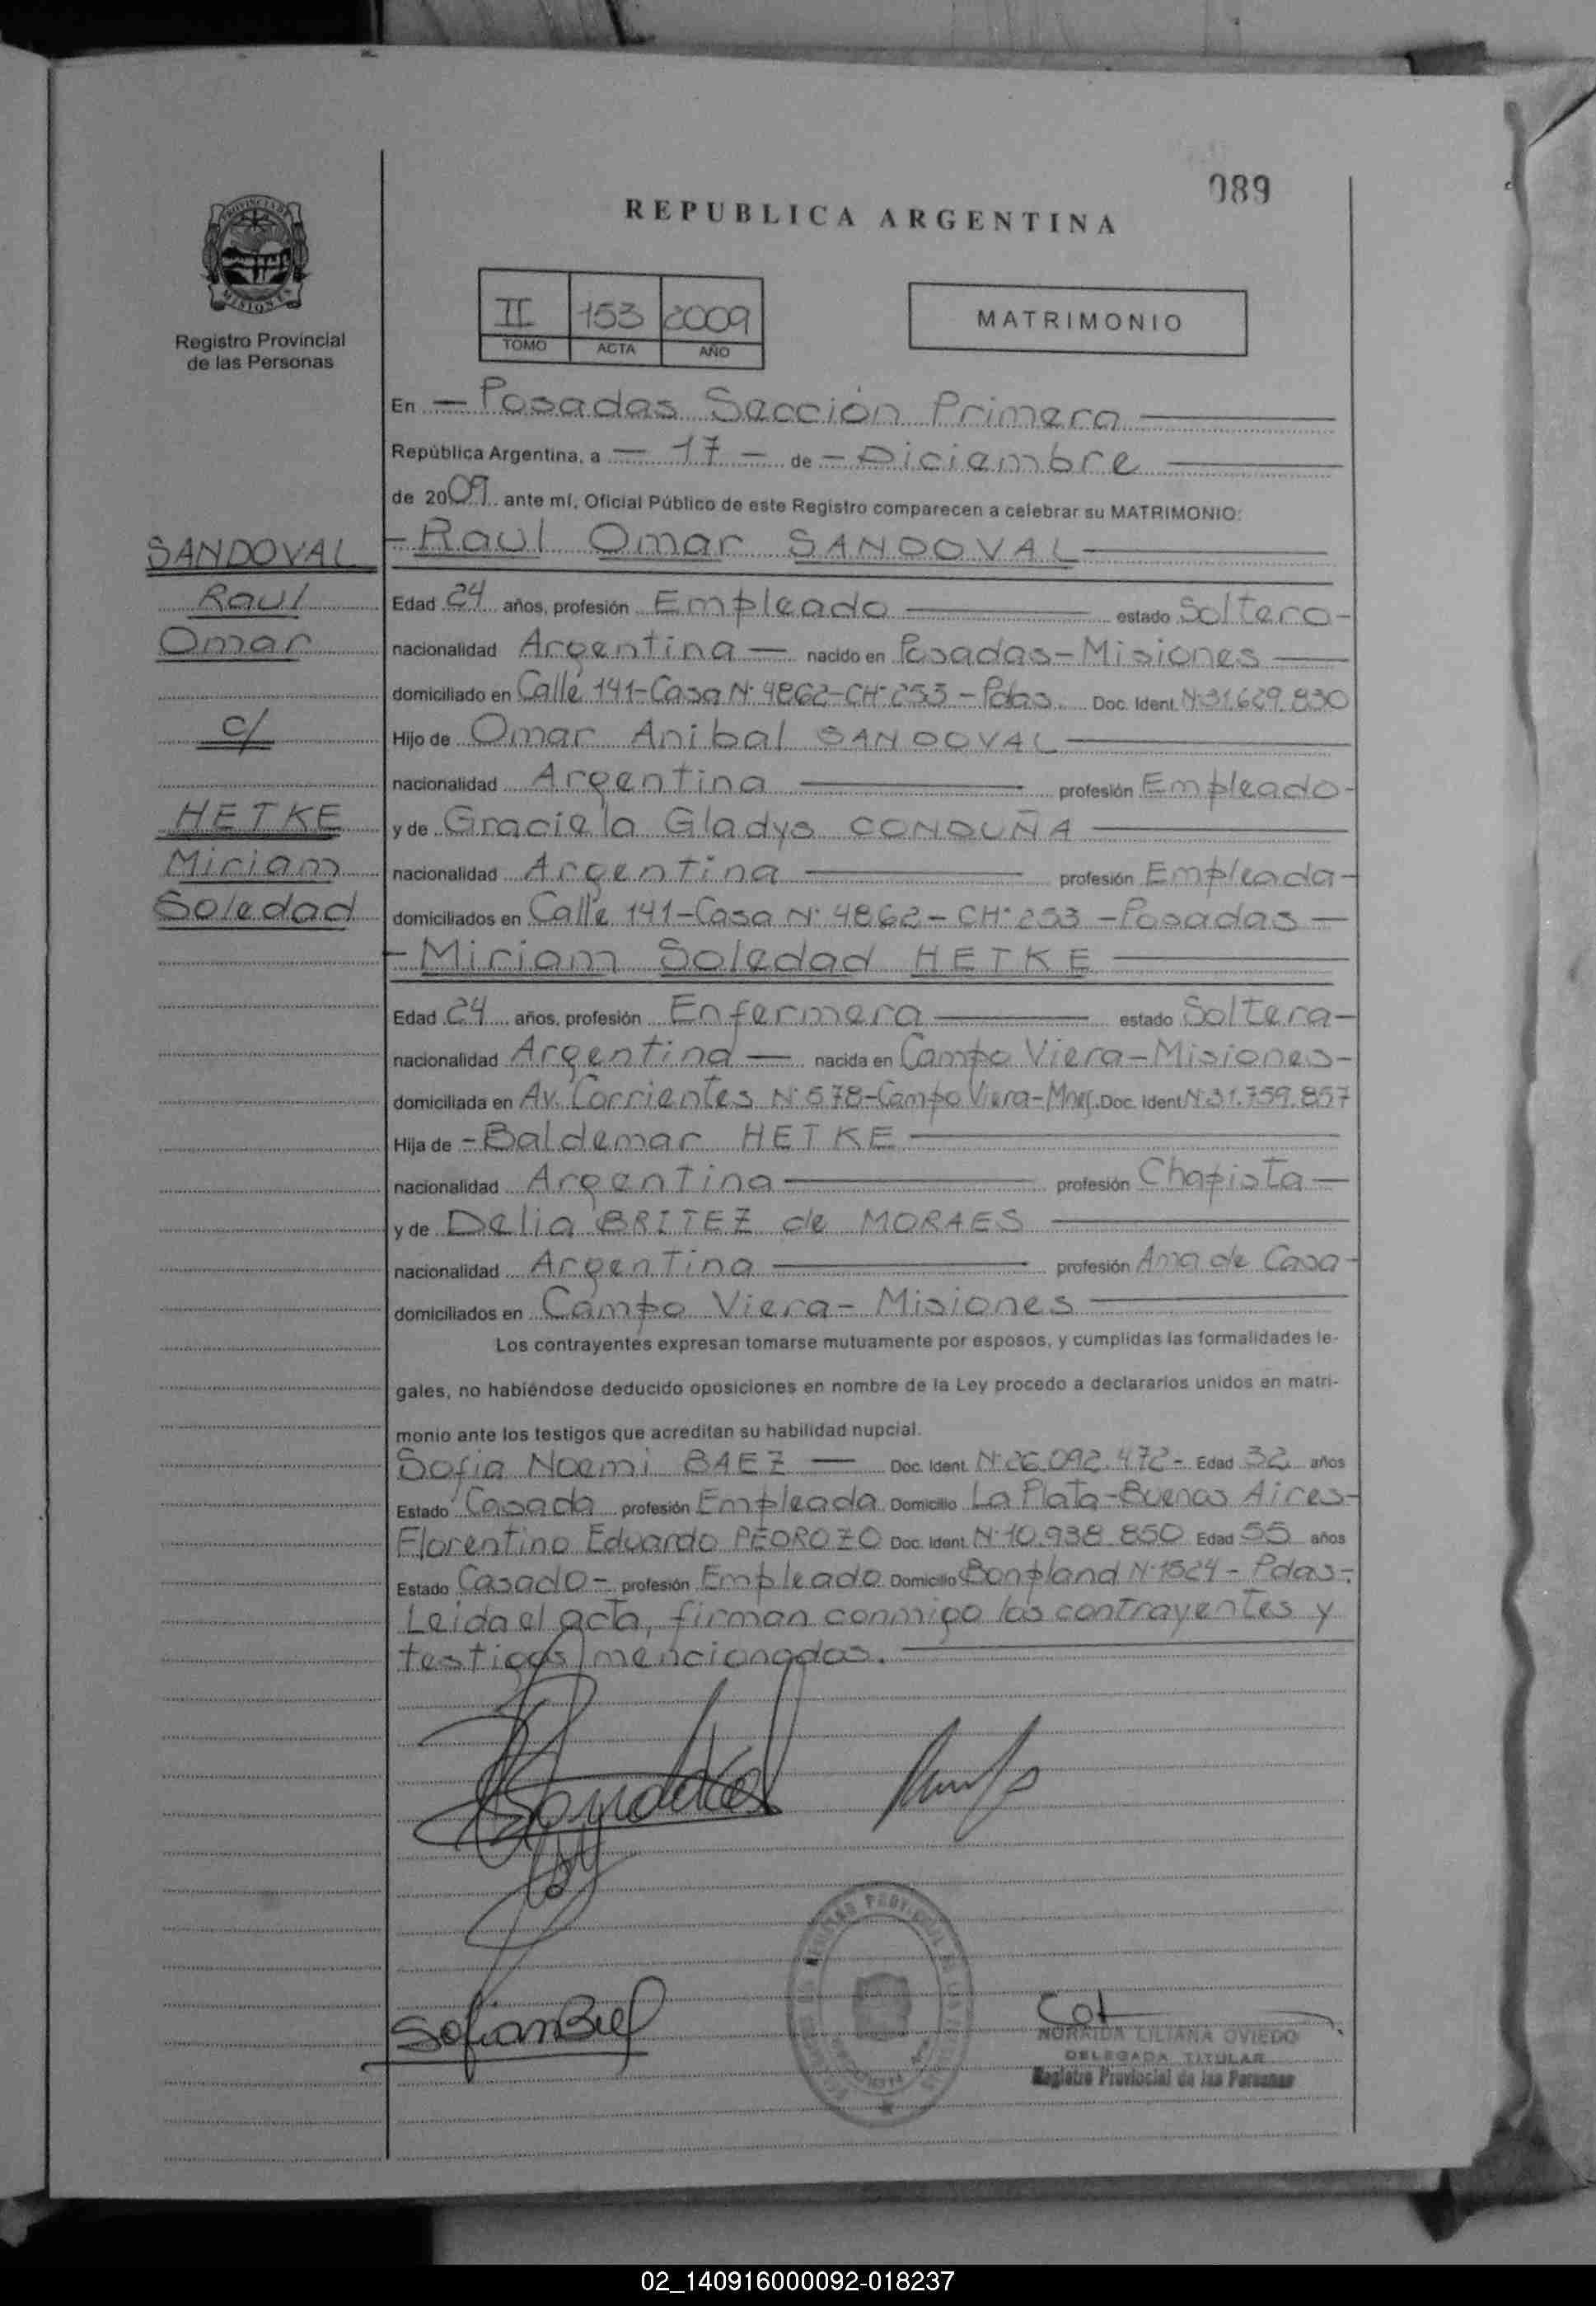 089
REPUBLICA ARGENTINA
PROVINCIA DE
MISIONES
Registro Provincial
de las Personas
II 153 2009
TOMO ACTA AÑO
MATRIMONIO
En — Posadas Sección Primera
República Argentina, a — 17 — de — Diciembre
de 2009 ante mí, Oficial Público de este Registro comparecen a celebrar su MATRIMONIO:
SANDOVAL
Raul
Omar
c/
HETKE
Miriam
Soledad
- Raul Omar SANDOVAL
Edad 24 años, profesión Empleado estado Soltero-
nacionalidad Argentina — nacido en Posadas-Misiones
domiciliado en Calle 141-Casa N° 4862-CH° 253-Pdas. Doc. Ident. N°31.629.830
Hijo de Omar Anibal SANDOVAL
nacionalidad Argentina profesión Empleado-
y de Graciela Gladys CONDUÑA
nacionalidad Argentina profesión Empleada-
domiciliados en Calle 141-Casa N° 4862-CH° 253-Posadas —
- Miriam Soledad HETKE
Edad 24 años, profesión Enfermera estado Soltera-
nacionalidad Argentina — nacida en Campo Viera-Misiones-
domiciliada en Av. Corrientes N° 578-Campo Viera-Mnes. Doc. Ident N°31.759.857
Hija de - Baldemar HETKE
nacionalidad Argentina profesión Chapista —
y de Delia BRITEZ de MORAES
nacionalidad Argentina profesión Ama de Casa-
domiciliados en Campo Viera-Misiones
Los contrayentes expresan tomarse mutuamente por esposos, y cumplidas las formalidades le-
gales, no habiéndose deducido oposiciones en nombre de la Ley procedo a declararlos unidos en matri-
monio ante los testigos que acreditan su habilidad nupcial.
Sofia Noemi BAEZ — Doc. Ident. N°26.092.472- Edad 32 años
Estado Casada profesión Empleada Domicilio La Plata-Buenos Aires-
Florentino Eduardo PEDROZO Doc. Ident. N°10.938.850 Edad 55 años
Estado Casado- profesión Empleado Domicilio Bonpland N°1524-Pdas-
Leida el acta, firman conmigo los contrayentes y
testigos mencionados.
NORAIDA LILIANA OVIEDO
DELEGADA TITULAR
Registro Provincial de las Personas
02_140916000092-018237